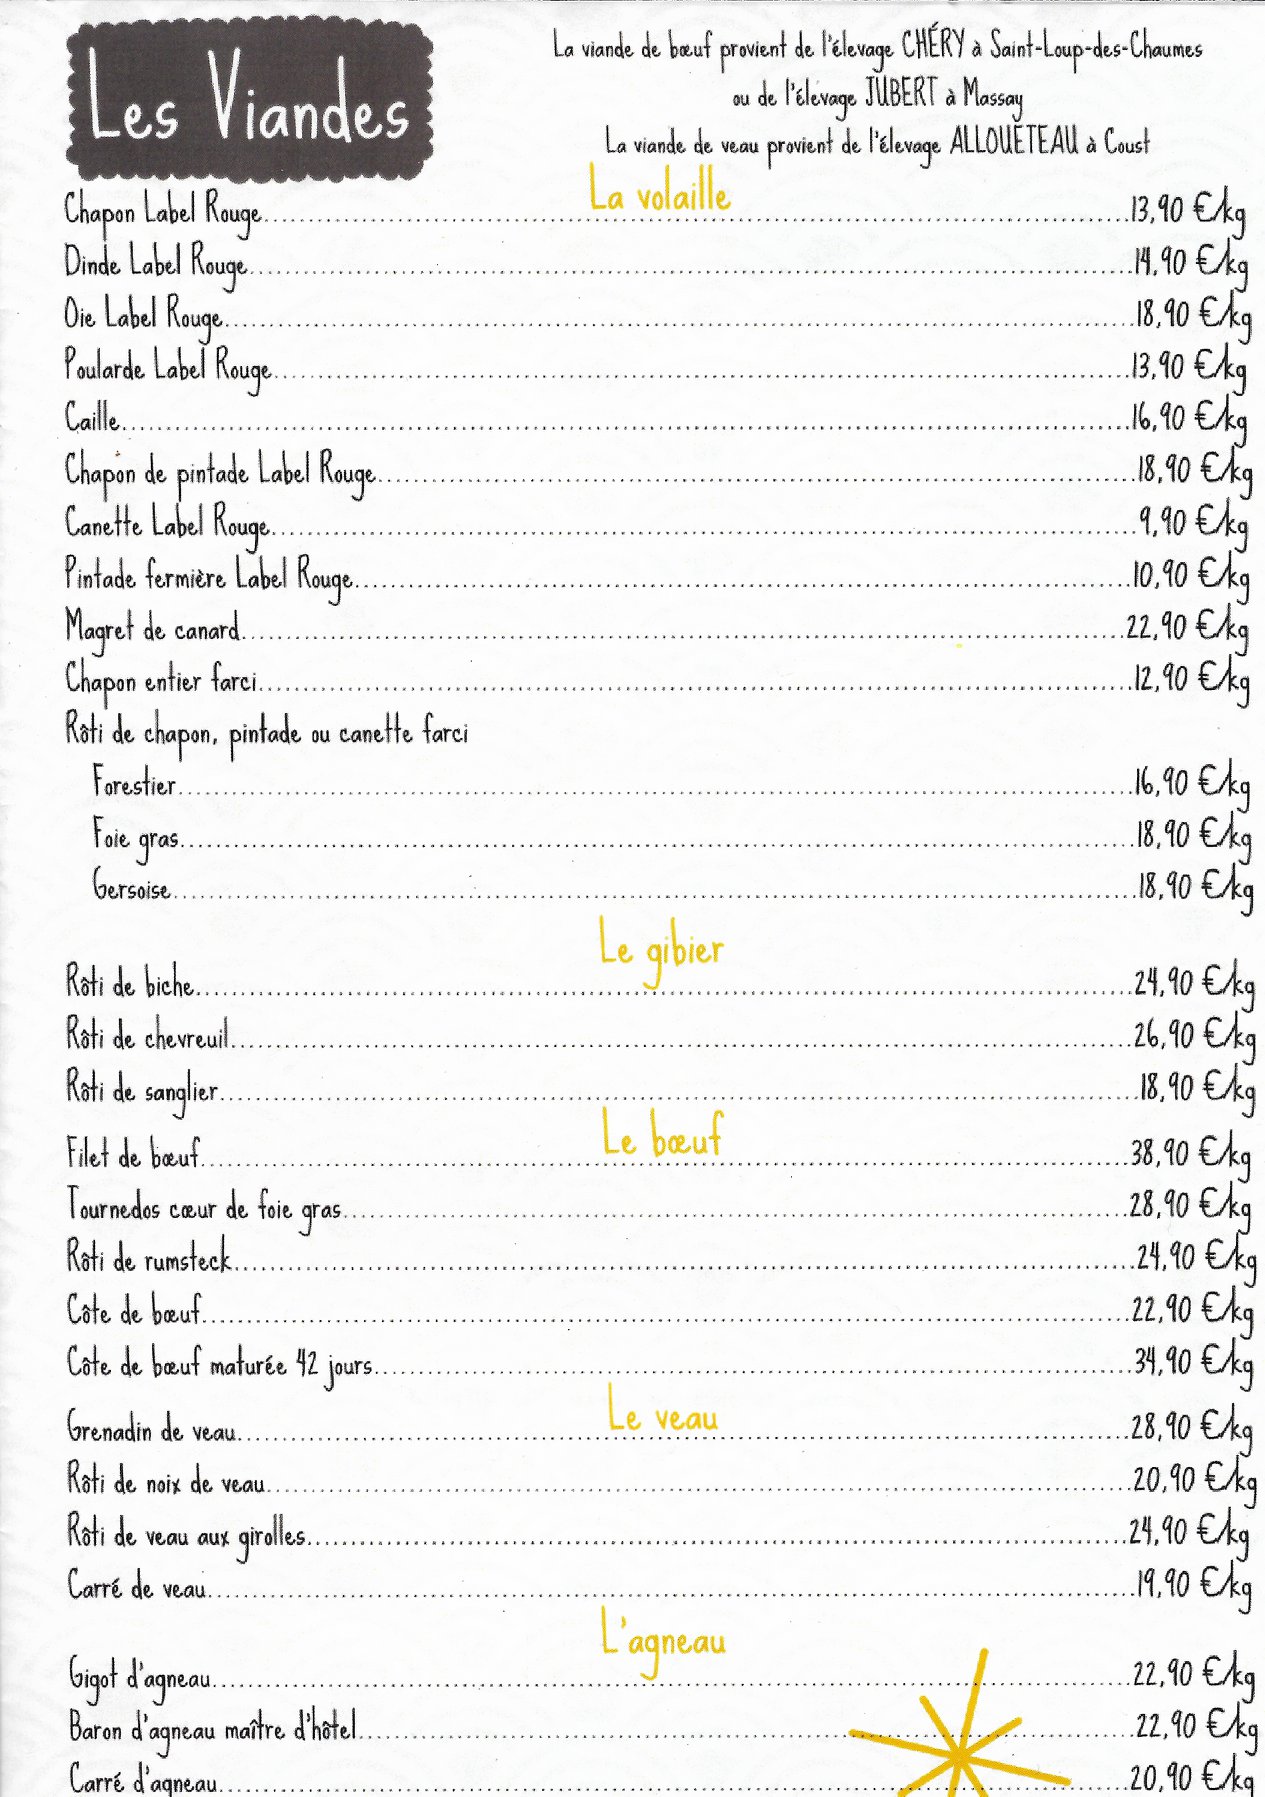 Les Viandes
La viande de bœuf provient de l'élevage CHÉRY à Saint-Loup-des-Chaumes
ou de l'élevage JUBERT à Massay
La viande de veau provient de l'élevage ALLOUETEAU à Coust
La volaille
Chapon Label Rouge 13,90 €/kg
Dinde Label Rouge 14,90 €/kg
Oie Label Rouge 18,90 €/kg
Poularde Label Rouge 13,90 €/kg
Caille 16,90 €/kg
Chapon de pintade Label Rouge 18,90 €/kg
Canette Label Rouge 9,90 €/kg
Pintade fermière Label Rouge 10,90 €/kg
Magret de canard 22,90 €/kg
Chapon entier farci 12,90 €/kg
Rôti de chapon, pintade ou canette farci
Forestier 16,90 €/kg
Foie gras 18,90 €/kg
Gersoise 18,90 €/kg
Le gibier
Rôti de biche 24,90 €/kg
Rôti de chevreuil 26,90 €/kg
Rôti de sanglier 18,90 €/kg
Le bœuf
Filet de bœuf 38,90 €/kg
Tournedos cœur de foie gras 28,90 €/kg
Rôti de rumsteck 24,90 €/kg
Côte de bœuf 22,90 €/kg
Côte de bœuf maturée 42 jours 34,90 €/kg
Le veau
Grenadin de veau 28,90 €/kg
Rôti de noix de veau 20,90 €/kg
Rôti de veau aux girolles 24,90 €/kg
Carré de veau 19,90 €/kg
L'agneau
Gigot d'agneau 22,90 €/kg
Baron d'agneau maître d'hôtel 22,90 €/kg
Carré d'agneau 20,90 €/kg